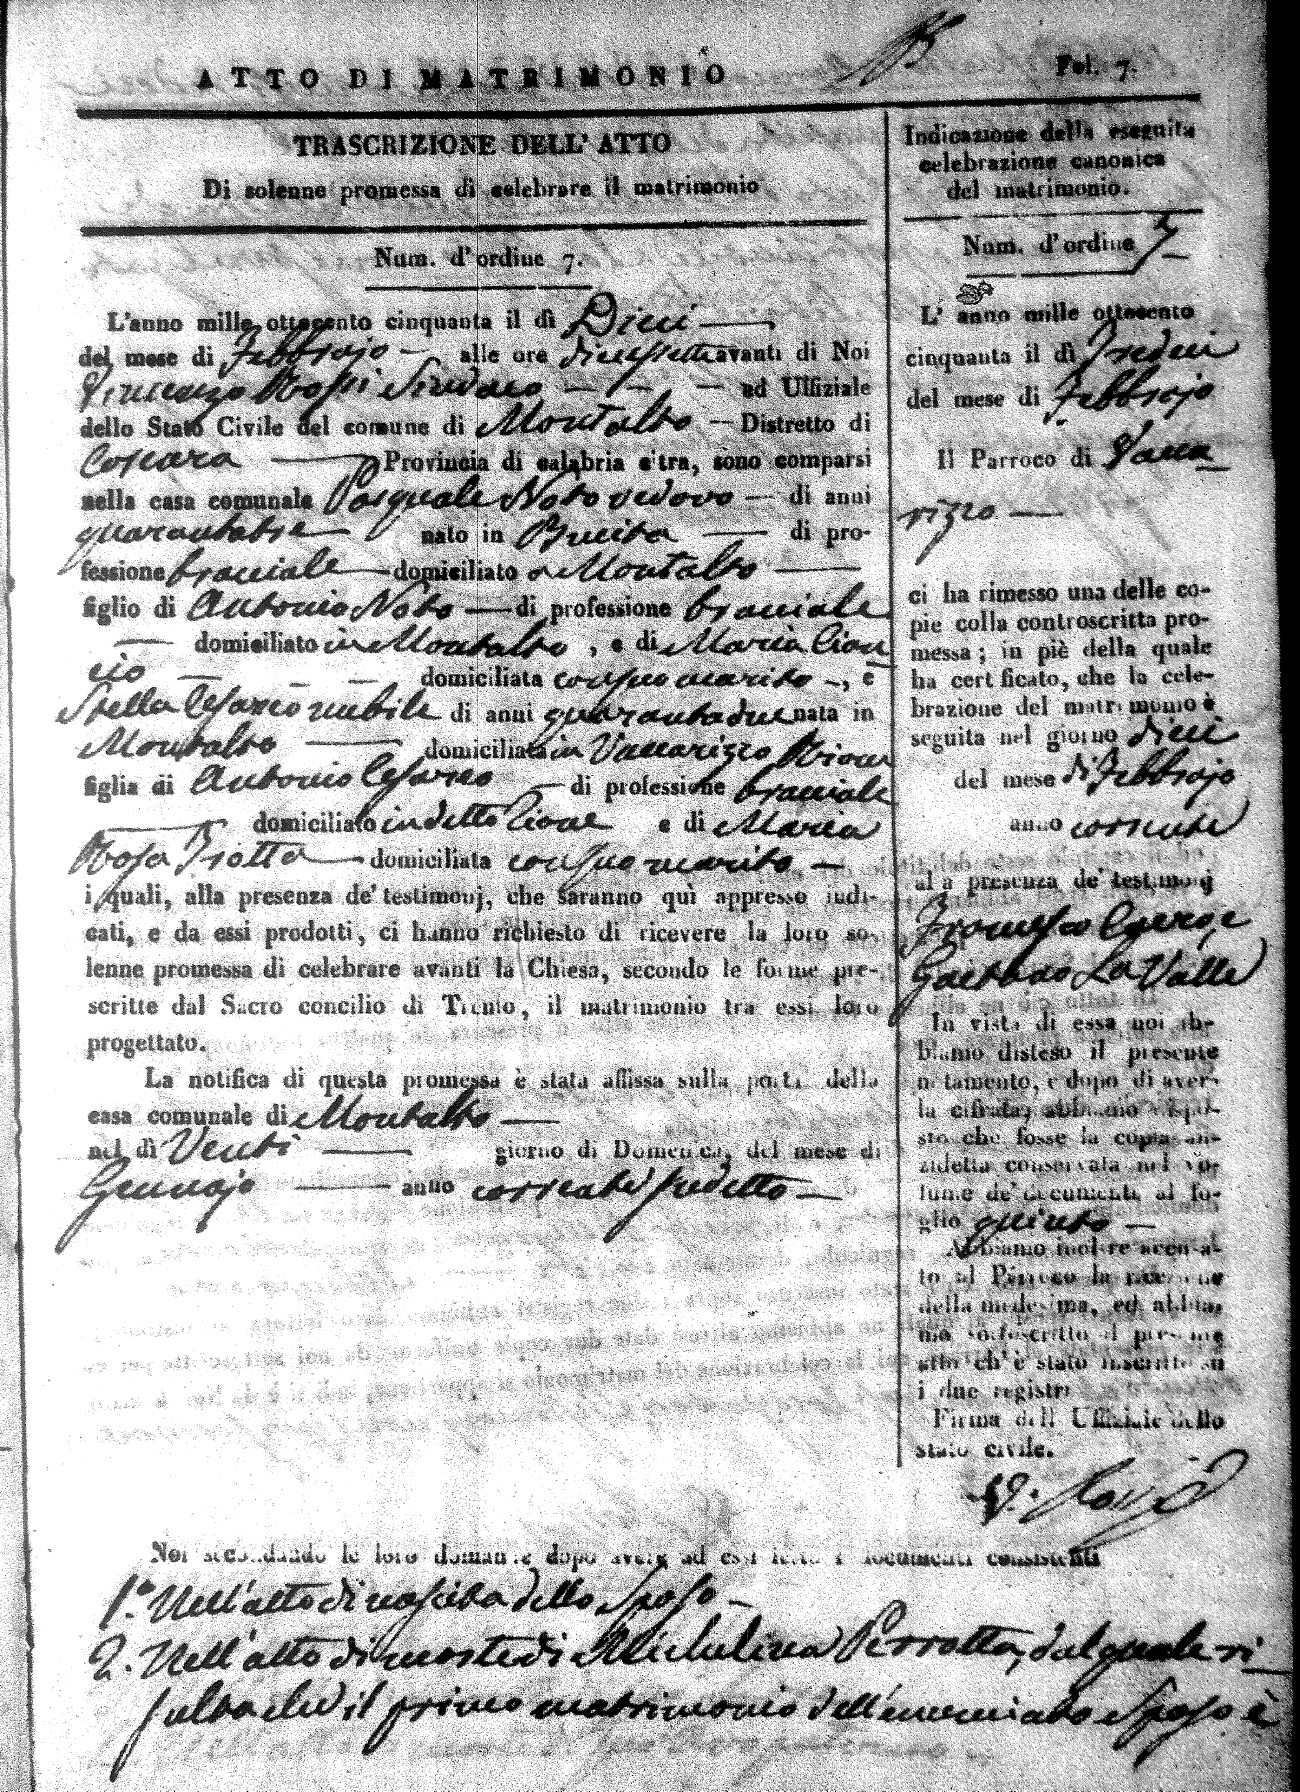 ATTO DI MATRIMONIO
Fol. 7.
TRASCRIZIONE DELL' ATTO
Di solenne promessa di celebrare il matrimonio
Num. d' ordine 7.
L'anno mille ottocento cinquanta il dì Dieci
del mese di Febbrajo alle ore diciassette avanti di Noi
Vincenzo Rossi Sindaco ed Uffiziale
dello Stato Civile del comune di Montalto Distretto di
Cosenza Provincia di calabria citra, sono comparsi
nella casa comunale Pasquale Noto vedovo di anni
quarantatre nato in di pro-
fessione bracciale domiciliato a Montalto
figlio di Antonio Noto di professione bracciale
domiciliato in Montalto, e di Maria
cio domiciliata con suo marito, e
Stella Cesareo nubile di anni quarantadue nata in
Montalto domiciliata in Vaccarizzo
figlia di Antonio Cesareo di professione bracciale
domiciliato in detto e di Maria
Rosa Trotta domiciliata con suo marito
i quali, alla presenza de' testimonj, che saranno quì appresso indi-
cati, e da essi prodotti, ci hanno richiesto di ricevere la loro so-
lenne promessa di celebrare avanti la Chiesa, secondo le forme pre-
scritte dal Sacro concilio di Trento, il matrimonio tra essi loro
progettato.
La notifica di questa promessa è stata affissa sulla porta della
casa comunale di Montalto
nel dì Venti giorno di Domenica, del mese di
Gennajo anno corrente sudetto
Indicazione della eseguita
celebrazione canonica
del matrimonio.
Num. d' ordine 7
L' anno mille ottocento
cinquanta il dì Tredici
del mese di Febbrajo
Il Parroco di Vacca
rizzo
ci ha rimesso una delle co-
pie colla controscritta pro-
messa; in piè della quale
ha certificato, che la cele-
brazione del matrimonio è
seguita nel giorno dieci
del mese di Febbrajo
anno corrente
alla presenza de' testimonj
Francesco
Gaetano La Valle
In vista di essa noi ab-
biamo disteso il presente
notamento, e dopo di aver-
la cifrata, abbiamo dispo-
sto che fosse la copia an-
zidetta conservata nel vo-
lume de' documenti al fo-
glio quinto
Abbiamo inoltre accusa-
to al Parroco la ricezione
della medesima, ed abbia-
mo sottoscritto il presente
atto ch' è stato inscritto su
i due registri
Firma dell' Uffiziale dello
stato civile.
V. Rossi
Noi secondando le loro domande dopo avere ad essi letto i documenti consistenti
1.° Nell'atto di nascita dello Sposo
2. Nell'atto di morte di Michelina Perrotta, dal quale ri
sulta che il primo matrimonio dell'enunciato Sposo è